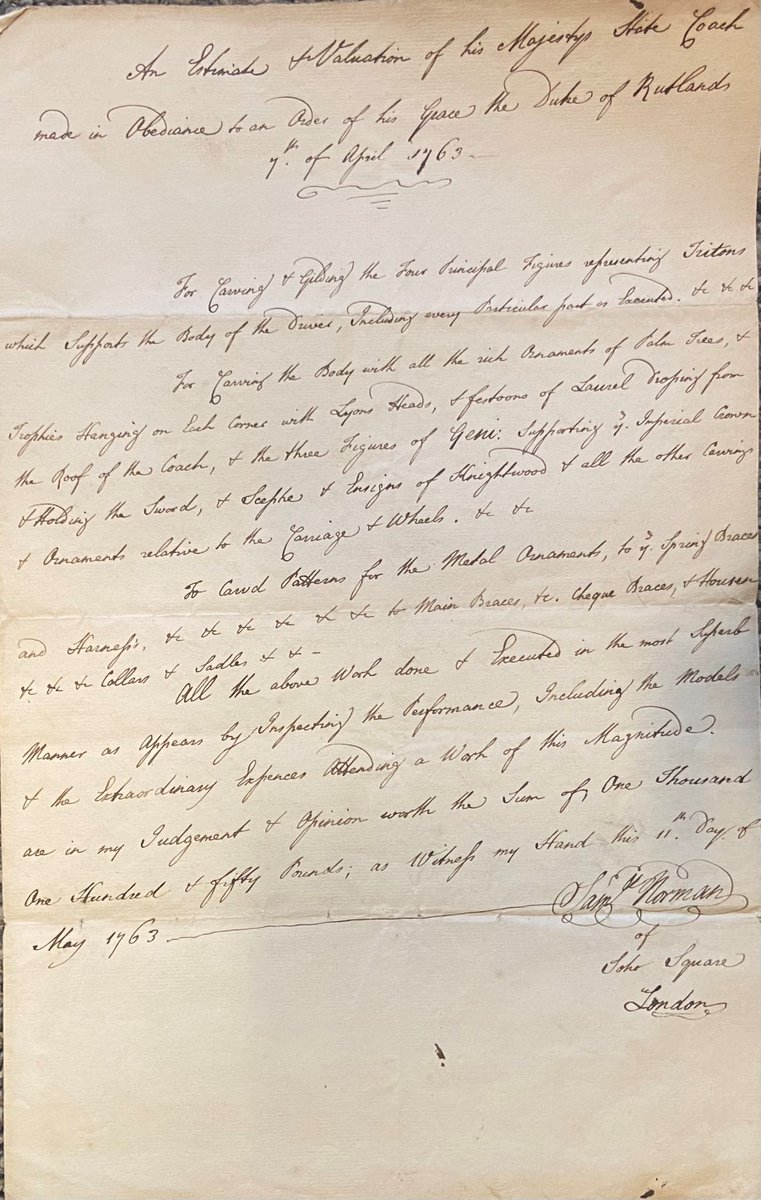 An Estimate & Valuation of his Majestys State Coach
made in Obediance to an Order of his Grace the Duke of Rutlands
7th. of April 1763
For Carving & Gilding the Four Principal Figures representing Tritons
which Supports the Body of the Driver, Including every Particular part as Executed. &c &c &c
For Carving the Body with all the rich Ornaments of Palm Trees, &
Trophies Hanging on Each Corner with Lyons Heads, & festoons of Laurel Droping from
the Roof of the Coach, & the three Figures of Geni: Supporting ye. Imperial Crown
& Holding the Sword, & Scepthe & Ensigns of Knightwood & all the other Carvings
& Ornaments relative to the Carriage & Wheels. &c &c
To Carv'd Patterns for the Metal Ornaments, to ye. Spring Braces
and Harness's, &c &c &c &c &c &c to Main Braces, &c. Cheque Braces, & Housen
&c &c &c Collars & Sadles & & -
All the above Work done & Executed in the most Superb
Manner as Appears by Inspecting the Performance, Including the Models
& the Extraordinary Expences Attending a Work of this Magnitude.
are in my Judgement & Opinion worth the Sum of, One Thousand
One Hundred & fifty Pounds; as Witness my Hand this 11th. Day. of
May 1763 Saml. Norman
of
Soho Square
London